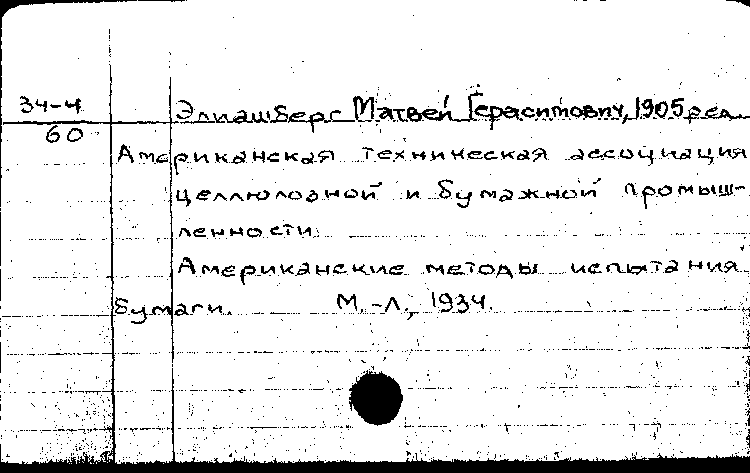 34-4
60
Элиашберг Матвей Герасимович, 1905 ред.
Американская техническая ассоциация
целлюлозной и бумажной промыш-
ленности
Американские методы испытания
бумаги. М.-Л., 1934.